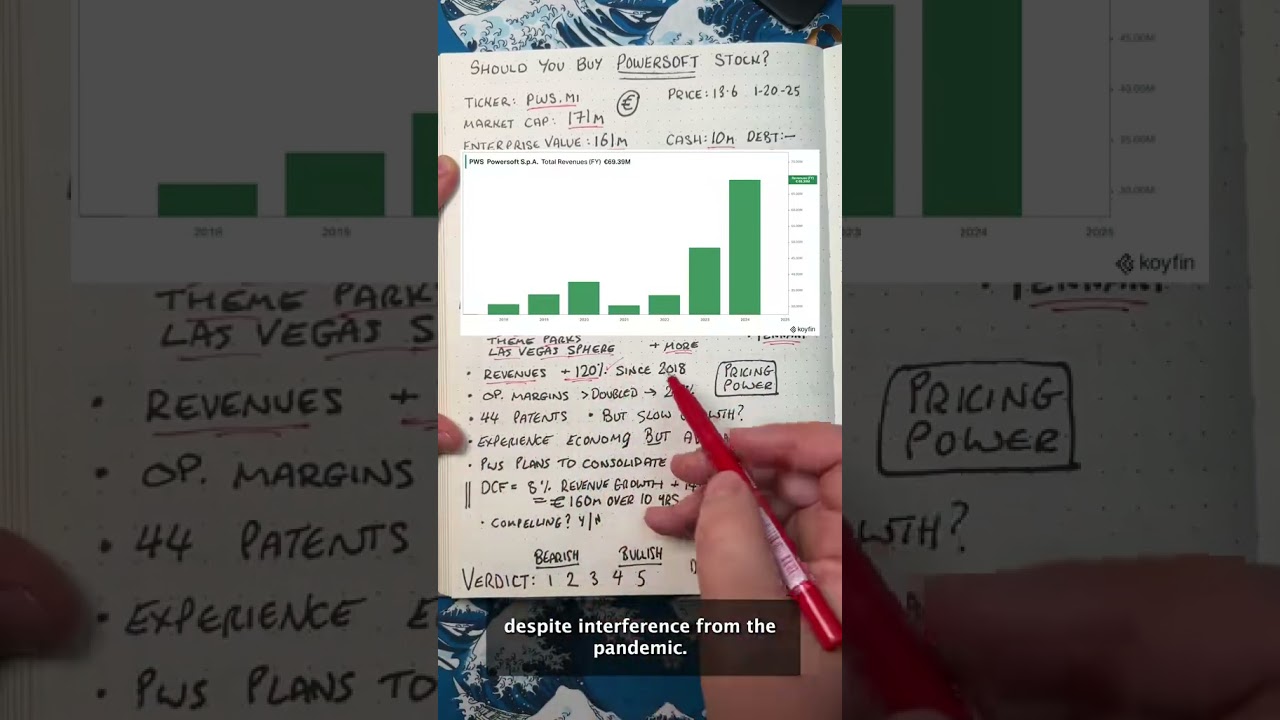 SHOULD YOU BUY POWERSOFT STOCK?
TICKER: PWS.MI
€
PRICE: 13.6 1-20-25
MARKET CAP: 171M
ENTERPRISE VALUE: 161M
CASH: 10M DEBT:—
PWS Powersoft S.p.A. Total Revenues (FY) €69.39M
2018 2019 2020 2021 2022 2023 2024 2025
koyfin
THEME PARKS
LAS VEGAS SPHERE
+ MORE
• REVENUES + 120% SINCE 2018
PRICING POWER
• OP. MARGINS > DOUBLED →
• 44 PATENTS • BUT SLOW GROWTH?
• EXPERIENCE ECONOMY BUT
• PWS PLANS TO CONSOLIDATE
DCF = 8% REVENUE GROWTH +
= € 160M OVER 10 YRS
• COMPELLING? Y/N
BEARISH BULLISH
VERDICT: 1 2 3 4 5
despite interference from the
pandemic.
2018 2019
2024 2025
45.00M
40.00M
35.00M
30.00M
koyfin
THEME PARK
LAS VEGAS
• REVENUES +
• OP. MARGINS
• 44 PATENTS
• EXPERIENCE E
• PWS PLANS TO
PRICING
POWER